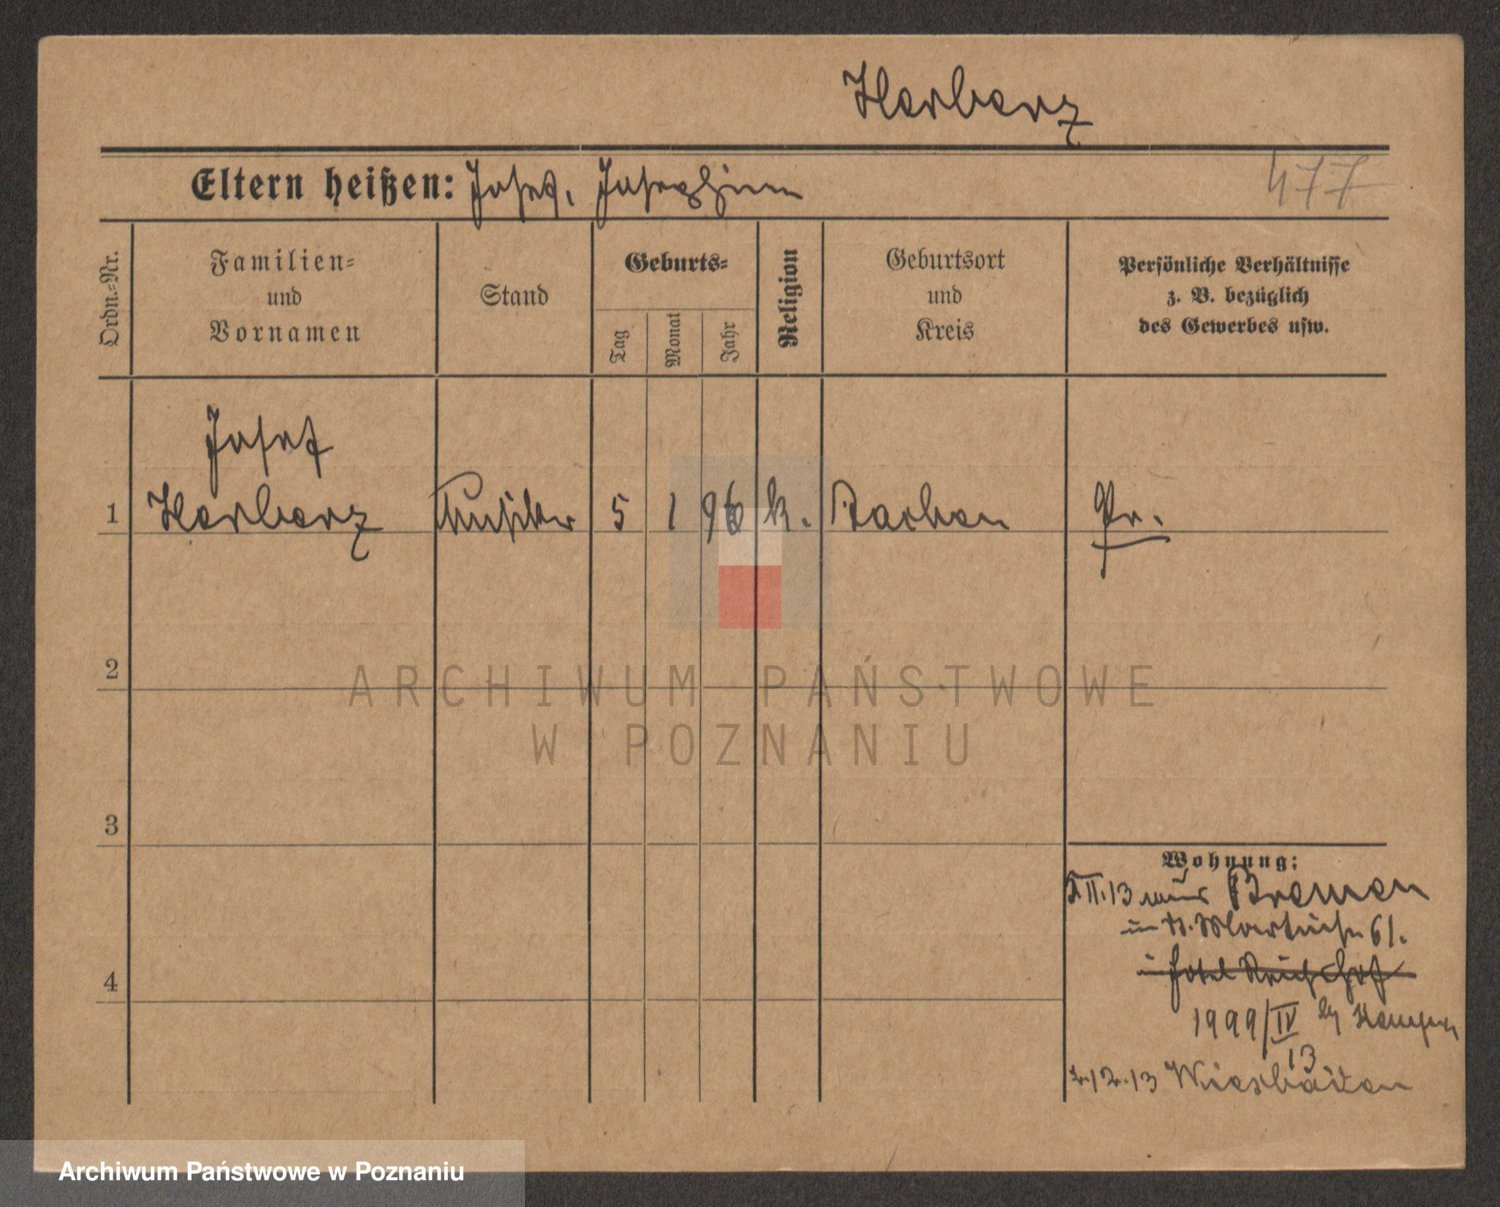 Herberz
Eltern heißen: Josef, Josephine
477
Ordn.-Nr.
Familien-
und
Vornamen
Stand
Geburts-
Tag
Monat
Jahr
Religion
Geburtsort
und
Kreis
Persönliche Verhältnisse
z. B. bezüglich
des Gewerbes usw.
Josef
1 Herberz Musiker 5 1 96 k. Aachen Pr.
2
3
4
Wohnung:
II.13 aus Bremen
61.
Hotel Reichshof
1999/IV
13
2.12.13 Wiesbaden
ARCHIWUM PAŃSTWOWE
W POZNANIU
Archiwum Państwowe w Poznaniu